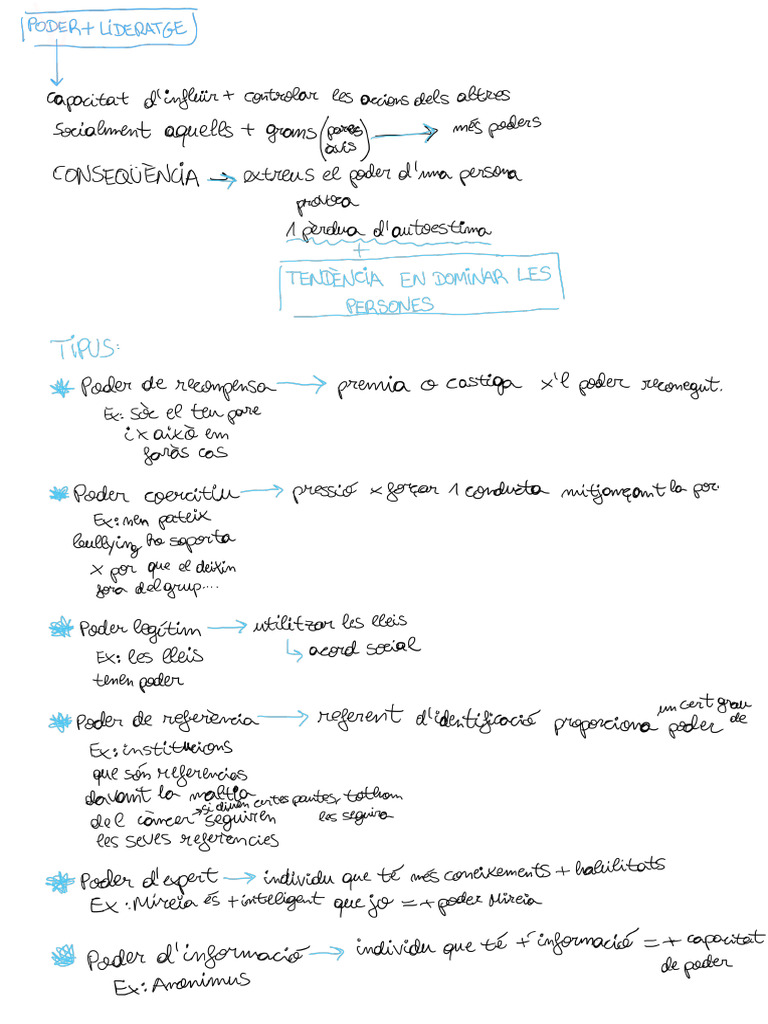 PODER + LIDERATGE
capacitat d'influïr + controlar les accions dels altres
socialment aquells + grans (pares avis) → més poders
CONSEQÜÈNCIA → extreus el poder d'una persona
provoca
1 pèrdua d'autoestima
+
TENDÈNCIA EN DOMINAR LES
PERSONES
TIPUS:
* Poder de recompensa → premia o castiga x'l poder reconegut.
Ex: sóc el teu pare
i x això em
faràs cas
* Poder coercitiu → pressió x forçar 1 conducta mitjançant la por.
Ex: nen pateix
bullying ho soporta
x por que el deixin
fora del grup....
* Poder legítim → utilitzar les lleis
↳ acord social
Ex: les lleis
tenen poder
* Poder de referència → referent d'identificació proporciona un cert grau de poder
Ex: institucions
que són referencies
davant la maltia
del càncer → si diuen certes pautes, tothom les seguira
seguiren
les seves referencies
* Poder d'expert → individu que té més coneixements + habilitats
Ex: Mireia és + inteligent que jo = + poder Mireia
* Poder d'informació → individu que té + informació = + capacitat
de poder
Ex: Anonimus